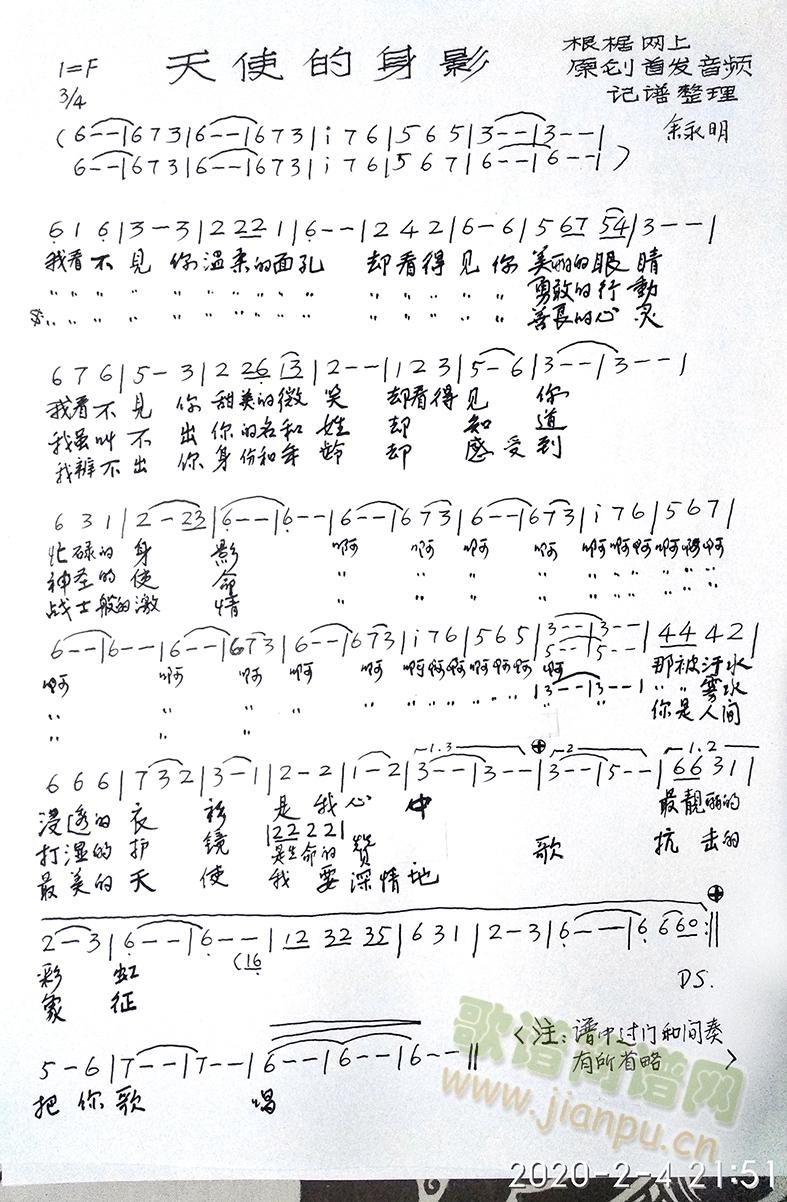 1=F 天使的身影 根椐网上
3/4 原创首发音频
记谱整理
余永明
(6--|673|6--|673|i76|565|3--|3--|
6--|673|6--|673|i76|567|6--|6--|)
616|3-3|2 22 1|6--|242|6-6|5 67 54|3--|
我看不见 你温柔的面孔 却看得见你 美丽的眼睛
〃 〃 〃 〃 〃 〃 〃 〃 〃 〃 〃 〃 〃 〃 〃 勇敢的行動
〃 〃 〃 〃 〃 〃 〃 〃 〃 〃 〃 〃 〃 〃 〃 善良的心灵
676|5-3|2 26 13|2--|123|5-6|3--|3--|
我看不见 你 甜美的微笑 却看得见 你
我虽叫不出你的名和姓 却 知道
我辨不出 你身份和年龄 却 感受到
631|2-23|6--|6--|6--|673|6--|673|i76|567|
忙碌的身 影 啊 啊 啊 啊 啊啊啊啊啊啊
神圣的使 命 〃 〃 〃 〃 〃 〃 〃 〃 〃 〃
战士般的激 情 〃 〃 〃 〃 〃 〃 〃 〃 〃 〃
6--|6--|6--|673|6--|673|i76|565|3--|3--|44 42|
5--|5--
啊 啊 啊 啊 啊 啊啊啊啊啊啊 啊 那被汗水
〃 〃 〃 〃 〃 〃 〃 〃 〃 〃 〃 |3--|3--| 〃 〃 雾水
〃 〃 〃 〃 〃 〃 〃 〃 〃 〃 〃 〃 你是人间
1.3 2 1.2
666|732|3-1|2-2|1-2|3--|3--|3--|5--|66 31|
浸透的衣 衫 是 我 心 中 最靓丽的
|22 2 2|
打湿的护 镜 是生命的 赞 歌 抗 击的
最美的天 使 我 要深情地
2-3|6--|6--|12 32 35|631|2-3|6--|6 6 60:||
(16
彩 虹
象 征 DS.
5-6|7--|7--|6--|6--|6--||
把你歌 唱
<注:谱中过门和间奏
有所省略>
歌谱简谱网
www.jianpu.cn
2020-2-4 21:51